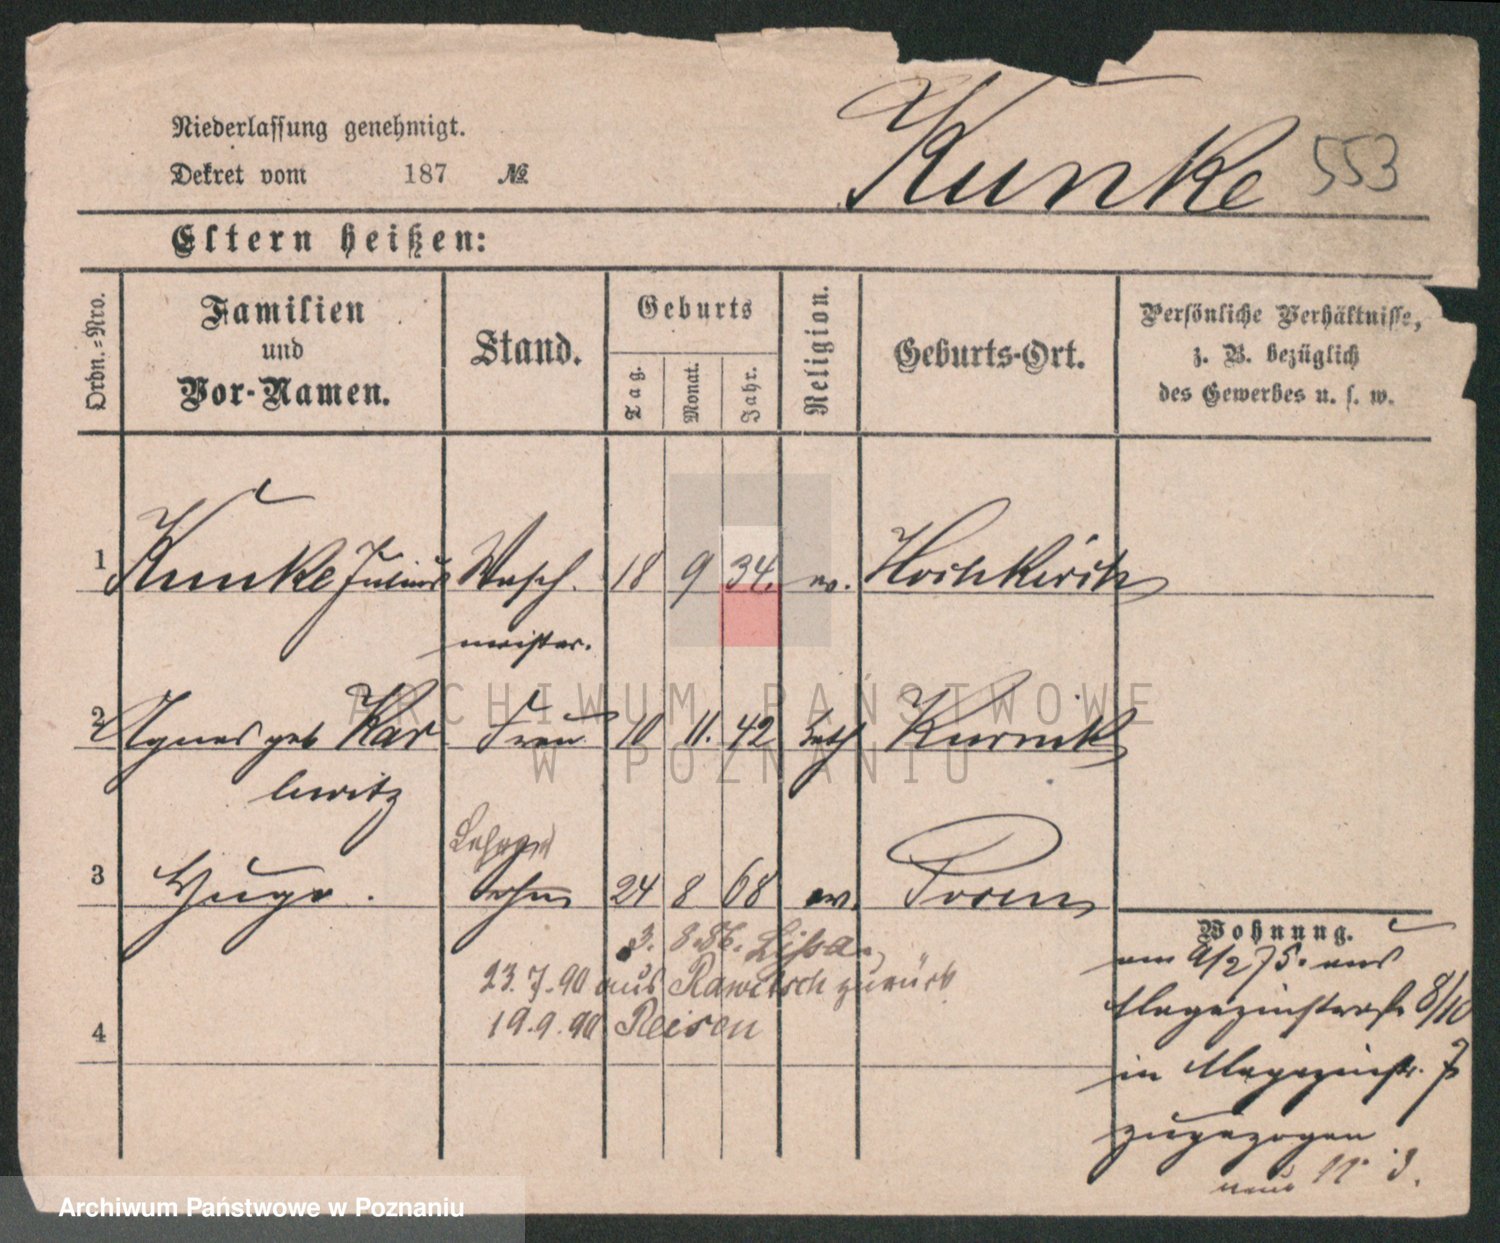 Niederlassung genehmigt.
Dekret vom 187 №
Kunke 553
Eltern heißen:
Ordn.-Nro.
Familien und Vor-Namen.
Stand.
Geburts
Tag.
Monat.
Jahr.
Religion.
Geburts-Ort.
Persönliche Verhältnisse,
z. B. bezüglich
des Gewerbes u. s. w.
1 Kunke Julius Wasch 18 9 34. ev. Hochkirch
meister.
2 Agnes geb Kar Frau 10 11. 42 kath Kurnik
lewitz
3 Hugo. Sohn 24 8 68 ev. Posen
3. 8. 86. Lissa
23. 7. 90 aus Rawitsch zurück
4 19. 9. 90 Reisen
Wohnung.
am 9/2 75. aus
Magazinstraße 8/10
in Magazinstr. 7
zugezogen
neue 11 3.
ARCHIWUM PAŃSTWOWE
W POZNANIU
Archiwum Państwowe w Poznaniu